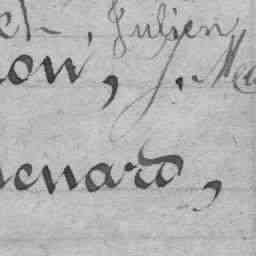 Julien
on, J. Me
enard,